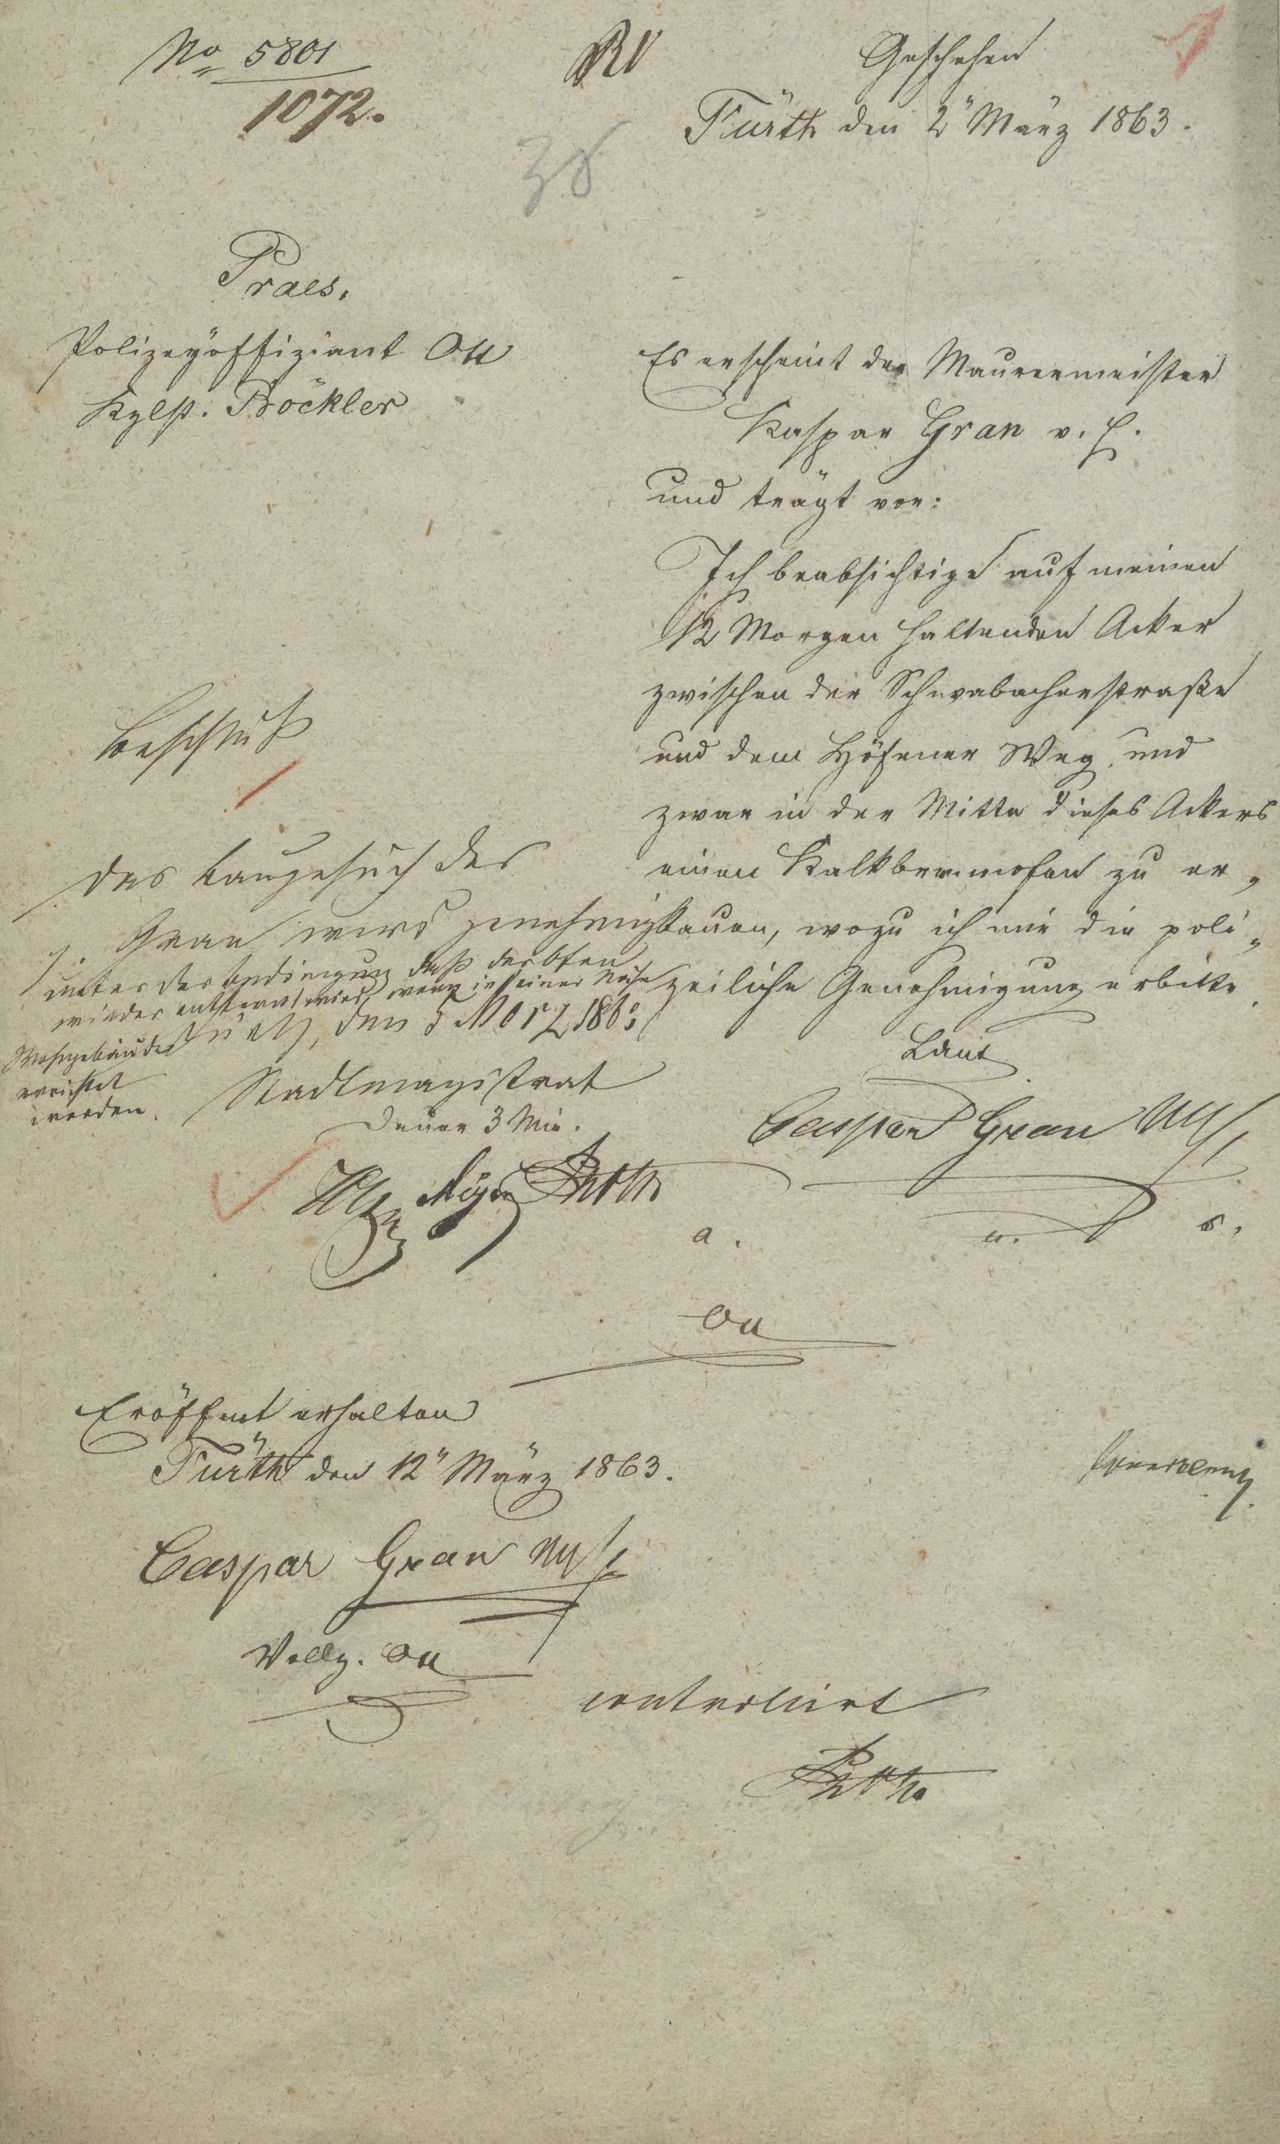 No 5801
1072.
Geschehen
Fürth den 2" März 1863.
38
Praes.
Polizeyoffiziant Ott
Böckler
Es erscheint der Maurermeister
Kaspar Gran v. h.
und trägt vor:
Ich beabsichtige auf meinen
12 Morgen haltenden Acker
zwischen der Schwabacherstraße
und dem Höfener Weg und
zwar in der Mitte dieses Ackers
einen Kalkbrennofen zu er-
bauen, wozu ich mir die poli-
zeiliche Genehmigung erbitte
Caspar Gran
a. u. s.
Ott
Beschluß
Das Baugesuch des
Gran wird genehmigt
unter der Bedingung daß derselbe
wieder entfernt wird, wenn in seiner Nähe
Wohngebäude
errichtet
werden.
Fürth, den 5 März 1863
Stadtmagistrat
Dauer 3 Min.
Eröffnet erhalten
Fürth den 12" März 1863.
Caspar Gran
Vollz. Ott
controlirt